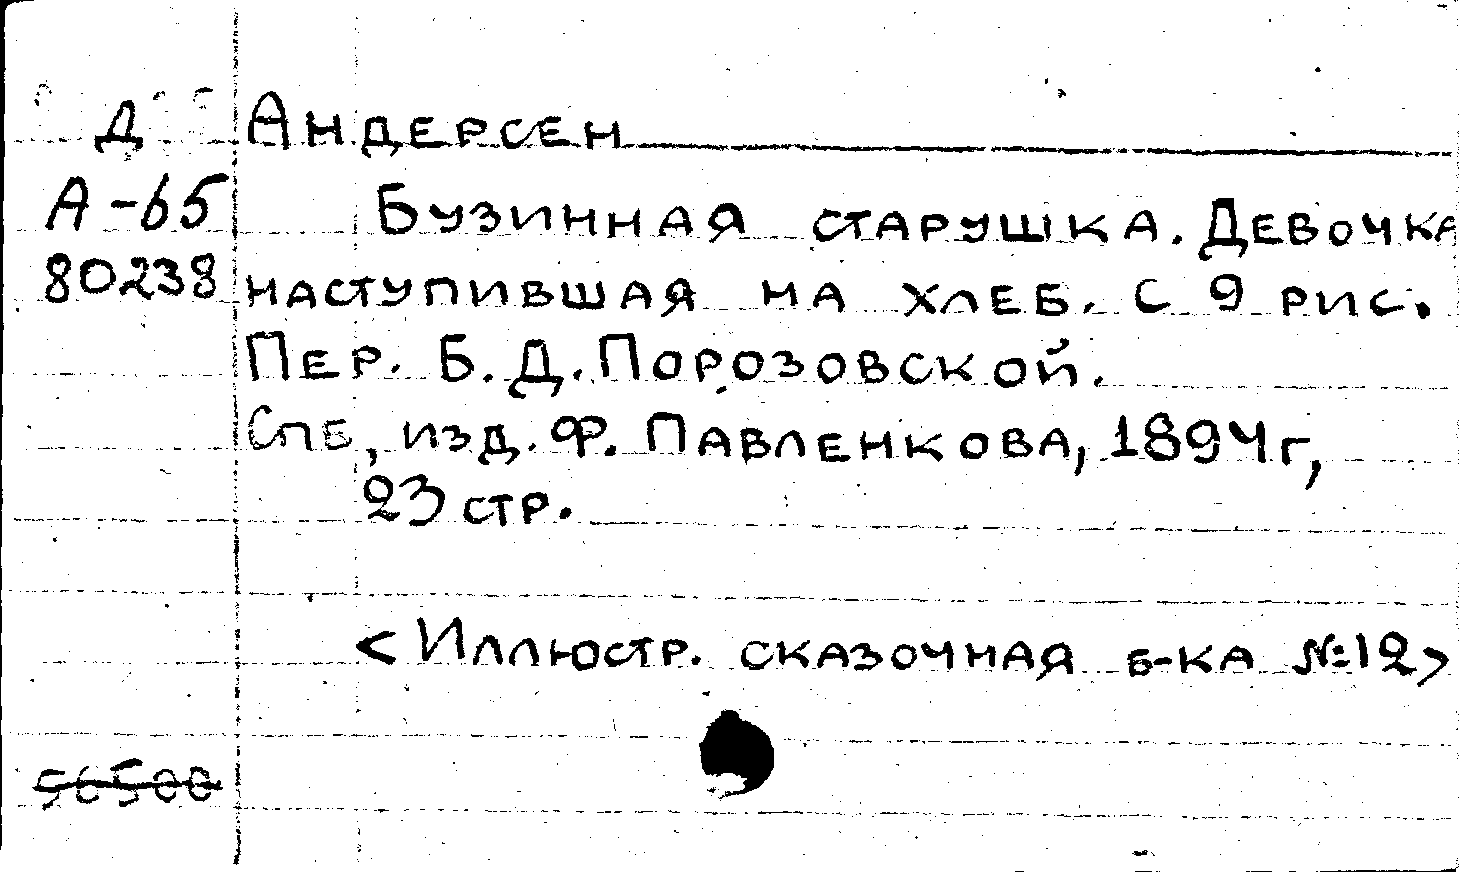 Д Андерсен
А-65 Бузинная старушка. Девочка
80238 наступившая на хлеб. С 9 рис.
Пер. Б. Д. Порозовской.
Спб, изд. Ф. Павленкова, 1894г,
23 стр.
<Иллюстр. сказочная б-ка №12>
56500